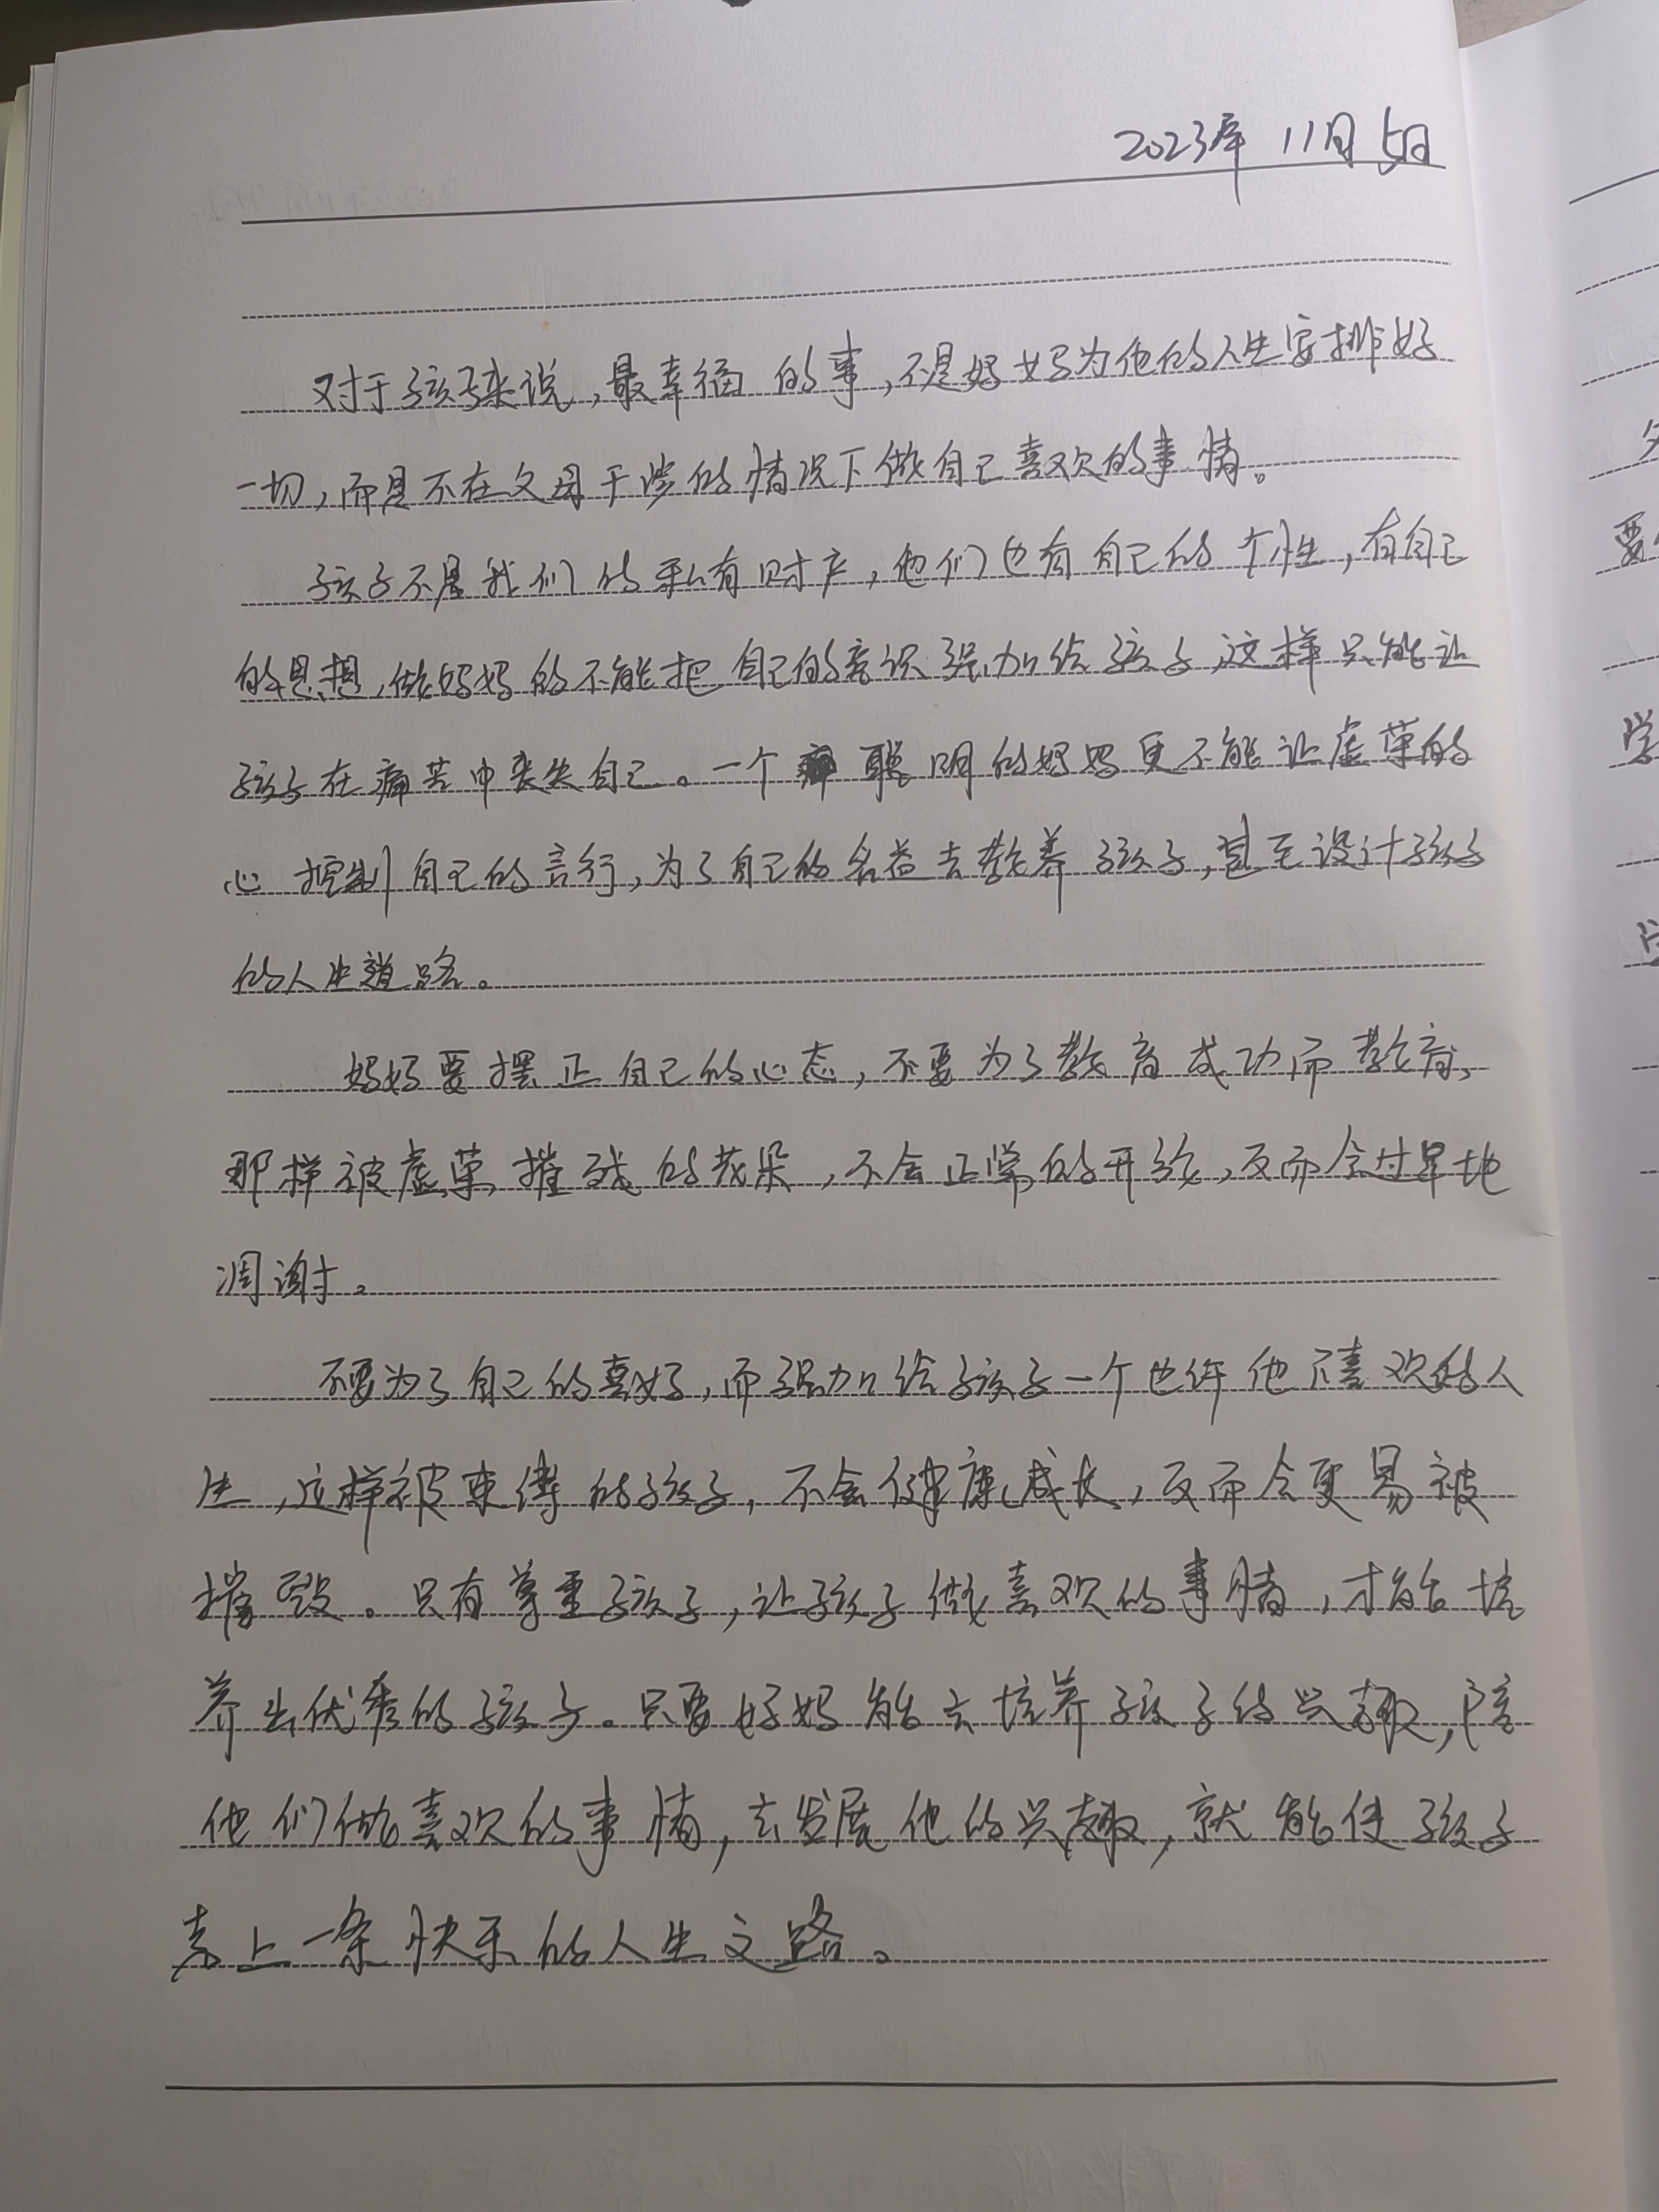 2023年 11月5日
对于孩子来说,最幸福的事,不是妈妈为他的人生安排好
一切,而是不在父母干涉的情况下做自己喜欢的事情。
孩子不是我们的私有财产,他们也有自己的个性,有自己
的思想,做妈妈的不能把自己的意识强加给孩子,这样只能让
孩子在痛苦中丧失自己。一个聪明的妈妈更不能让虚荣的
心控制自己的言行,为了自己的名益去教养孩子,甚至设计孩子
的人生道路。
妈妈要摆正自己的心态,不要为了教育成功而教育,
那样被虚荣摧残的花朵,不会正常的开放,反而会过早地
凋谢。
不要为了自己的喜好,而强加给孩子一个也许他不喜欢的人
生,这样被束缚的孩子,不会健康成长,反而会更易被
摧毁。只有尊重孩子,让孩子做喜欢的事情,才能培
养出优秀的孩子。只要妈妈能去培养孩子的兴趣,陪
他们做喜欢的事情,去发展他的兴趣,就能使孩子
走上一条快乐的人生之路。
要
学